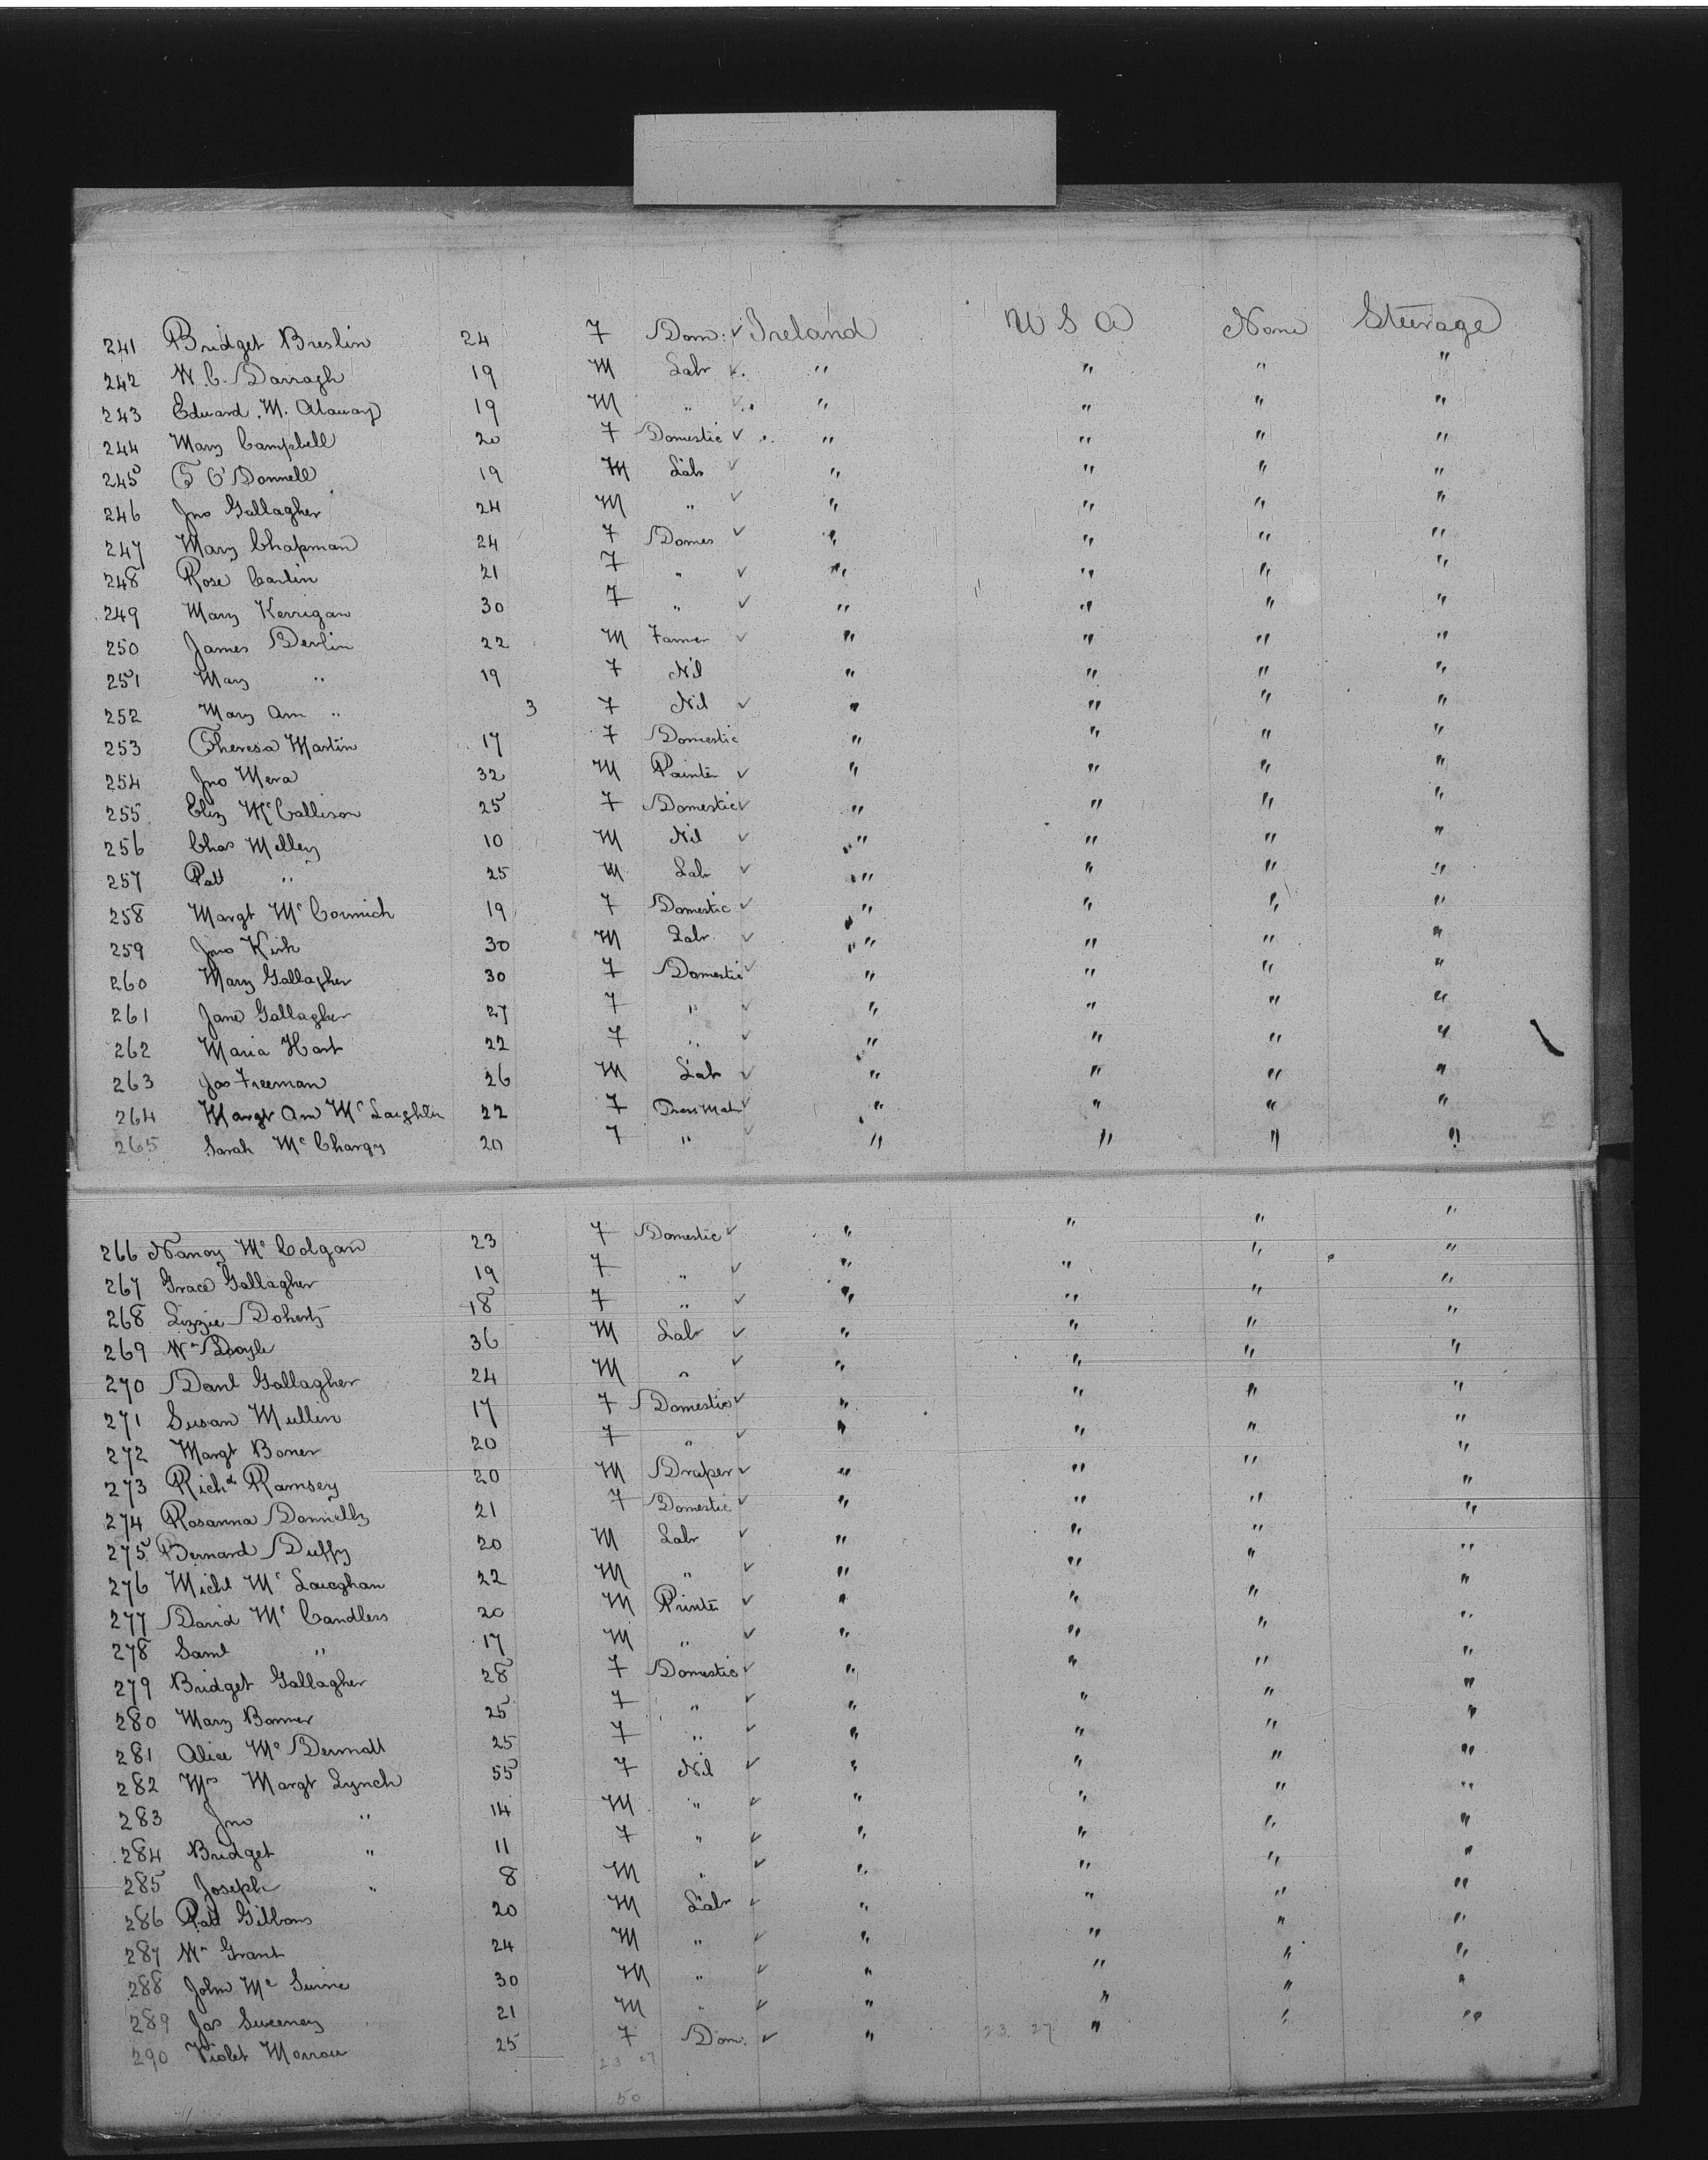 241 Bridget Breslin 24 F Dom: ✓ Ireland U S A None Steerage
242 W. C. Darragh 19 M Labr ✓ " " " "
243 Edward M. Alaway 19 M " ✓ " " " "
244 Mary Campbell 20 F Domestic ✓ " " " "
245 T O'Donnell 19 M Labr ✓ " " " "
246 Jno Gallagher 24 M " ✓ " " " "
247 Mary Chapman 24 F Domes ✓ " " " "
248 Rose Carlin 21 F " ✓ " " " "
249 Mary Kerrigan 30 F " ✓ " " " "
250 James Devlin 22 M Farmer ✓ " " " "
251 Mary " 19 F Nil " " " "
252 Mary Ann " 3 F Nil ✓ " " " "
253 Theresa Martin 17 F Domestic " " " "
254 Jno Mera 32 M Painter ✓ " " " "
255 Eliz McCallison 25 F Domestic ✓ " " " "
256 Chas Melley 10 M Nil ✓ " " " "
257 Patt " 25 M Labr ✓ " " " "
258 Margt McCormich 19 F Domestic ✓ " " " "
259 Jno Kirk 30 M Labr ✓ " " " "
260 Mary Gallagher 30 F Domestic ✓ " " " "
261 Jane Gallagher 27 F " ✓ " " " "
262 Maria Hart 22 F " ✓ " " " "
263 Jas Freeman 26 M Labr ✓ " " " "
264 Margt Ann McLaughlin 22 F Dress Makr ✓ " " " "
265 Sarah McChargy 20 F " ✓ " " " "
266 Nancy McColgan 23 F Domestic ✓ " " " "
267 Grace Gallagher 19 F " ✓ " " " "
268 Lizzie Doherty 18 F " ✓ " " " "
269 Wm Boyle 36 M Labr ✓ " " " "
270 Danl Gallagher 24 M " ✓ " " " "
271 Susan Mullin 17 F Domestic ✓ " " " "
272 Margt Boner 20 F " ✓ " " " "
273 Richd Ramsey 20 M Draper ✓ " " " "
274 Rosanna Donnelly 21 F Domestic ✓ " " " "
275 Bernard Duffy 20 M Labr ✓ " " " "
276 Michl McLaughan 22 M " ✓ " " " "
277 David McCandless 20 M Printer ✓ " " " "
278 Saml " 17 M " ✓ " " " "
279 Bridget Gallagher 28 F Domestic ✓ " " " "
280 Mary Bonner 25 F " ✓ " " " "
281 Alice McDermott 25 F " ✓ " " " "
282 Mrs Margt Lynch 55 F Nil ✓ " " " "
283 Jno " 14 M " ✓ " " " "
284 Bridget " 11 F " ✓ " " " "
285 Joseph " 8 M " ✓ " " " "
286 Patt Gibbons 20 M Labr ✓ " " " "
287 Wm Grant 24 M " ✓ " " " "
288 John McSwine 30 M " ✓ " " " "
289 Jas Sweeney 21 M " ✓ " " " "
290 Violet Morrow 25 F Dom. ✓ " 23 27 " " "
23 27
50